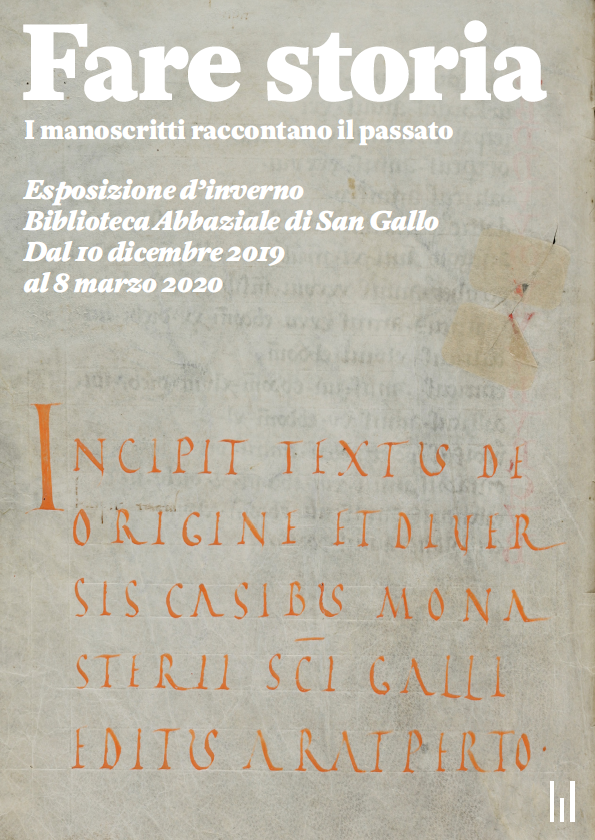 Fare storia
I manoscritti raccontano il passato
Esposizione d'inverno
Biblioteca Abbaziale di San Gallo
Dal 10 dicembre 2019
al 8 marzo 2020
INCIPIT TEXTUS DE
ORIGINE ET DIVER
SIS CASIBUS MONA
STERII SC̅I GALLI
EDITUS A RATPERTO·